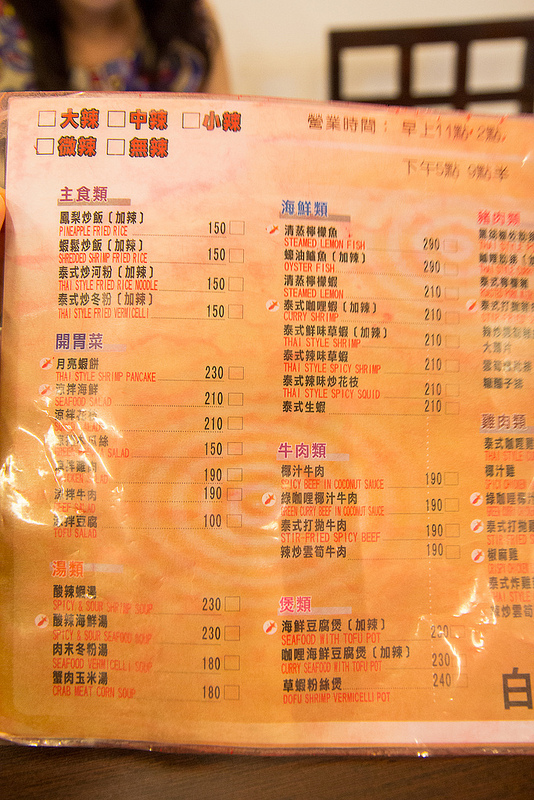 □大辣 □中辣 □小辣
□微辣 □無辣
營業時間：早上11點-2點
下午5點 9點半
主食類
鳳梨炒飯〔加辣〕 150
PINEAPPLE FRIED RICE
蝦鬆炒飯〔加辣〕 150
SHREDDED SHRIMP FRIED RICE
泰式炒河粉〔加辣〕 150
THAI STYLE FRIED RICE NOODLE
泰式炒冬粉〔加辣〕 150
THAI STYLE FRIED VERMICELLI
開胃菜
月亮蝦餅 230
THAI STYLE SHRIMP PANCAKE
涼拌海鮮 210
SEAFOOD SALAD
涼拌花枝 210
SALAD
瓜絲 150
SALAD
涼拌雞肉 190
CHICKEN SALAD
涼拌牛肉 190
BEEF SALAD
涼拌豆腐 100
TOFU SALAD
湯類
酸辣蝦湯 230
SPICY & SOUR SHRIMP SOUP
酸辣海鮮湯 230
SPICY & SOUR SEAFOOD SOUP
肉末冬粉湯 180
SEAFOOD VERMICELLI SOUP
蟹肉玉米湯 180
CRAB MEAT CORN SOUP
海鮮類
清蒸檸檬魚 290
STEAMED LEMON FISH
蠔油鱸魚〔加辣〕 290
OYSTER FISH
清蒸檸檬蝦 210
STEAMED LEMON
泰式咖哩蝦〔加辣〕 210
CURRY SHRIMP
泰式鮮味草蝦〔加辣〕 210
THAI STYLE SHRIMP
泰式辣味草蝦 210
THAI STYLE SPICY SHRIMP
泰式辣味炒花枝 210
THAI STYLE SPICY SQUID
泰式生蝦 210
牛肉類
椰汁牛肉 190
SPICY BEEF IN COCONUT SAUCE
綠咖哩椰汁牛肉 190
GREEN CURRY BEEF IN COCONUT SAUCE
泰式打拋牛肉 190
STIR-FRIED SPICY BEEF
辣炒雲筍牛肉 190
煲類
海鮮豆腐煲〔加辣〕 230
SEAFOOD WITH TOFU POT
咖哩海鮮豆腐煲〔加辣〕 230
CURRY SEAFOOD WITH TOFU POT
草蝦粉絲煲 240
DOFU SHRIMP VERMICELLI POT
豬肉類
泰式檸檬豬
泰式打拋豬
大薄片
雞肉類
泰式咖哩雞
椰汁雞
綠咖哩椰汁
泰式打拋雞
椒麻雞
泰式炸雞
辣炒雲筍
白